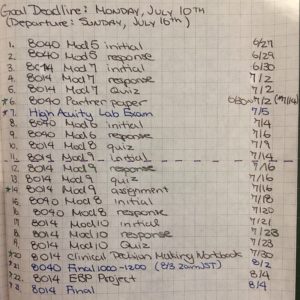 Goal Deadline: MONDAY, JULY 10TH
(Departure: SUNDAY, JULY 16TH)
1. 8040 Mod 5 initial 6/27
2. 8040 Mod 5 response 6/29
3. 8014 Mod 7 initial 6/30
4. 8014 Mod 7 response 7/2
5. 8014 Mod 7 Quiz 7/2
*6. 8040 Partner paper 7/2 (*7/14)
*7. High Acuity Lab Exam 7/5
8. 8040 Mod 6 initial 7/4
9. 8040 Mod 6 response 7/6
10. 8014 Mod 8 quiz 7/9
11. 8014 Mod 9 initial 7/14
12. 8014 Mod 9 response 7/16
13. 8014 Mod 9 quiz 7/16
*14. 8014 Mod 9 assignment 7/16
15. 8040 Mod 8 initial 7/18
16. 8040 Mod 8 response 7/20
17. 8014 Mod 10 initial 7/21
18. 8014 Mod 10 response 7/23
19. 8014 Mod 10 Quiz 7/23
*20. 8014 Clinical Decision Making Notebook 7/30
*21. 8040 Final 1000-1200 (8/3 2am JST) 8/2
*22. 8014 EBP Project 8/4
*23. 8014 Final 8/4